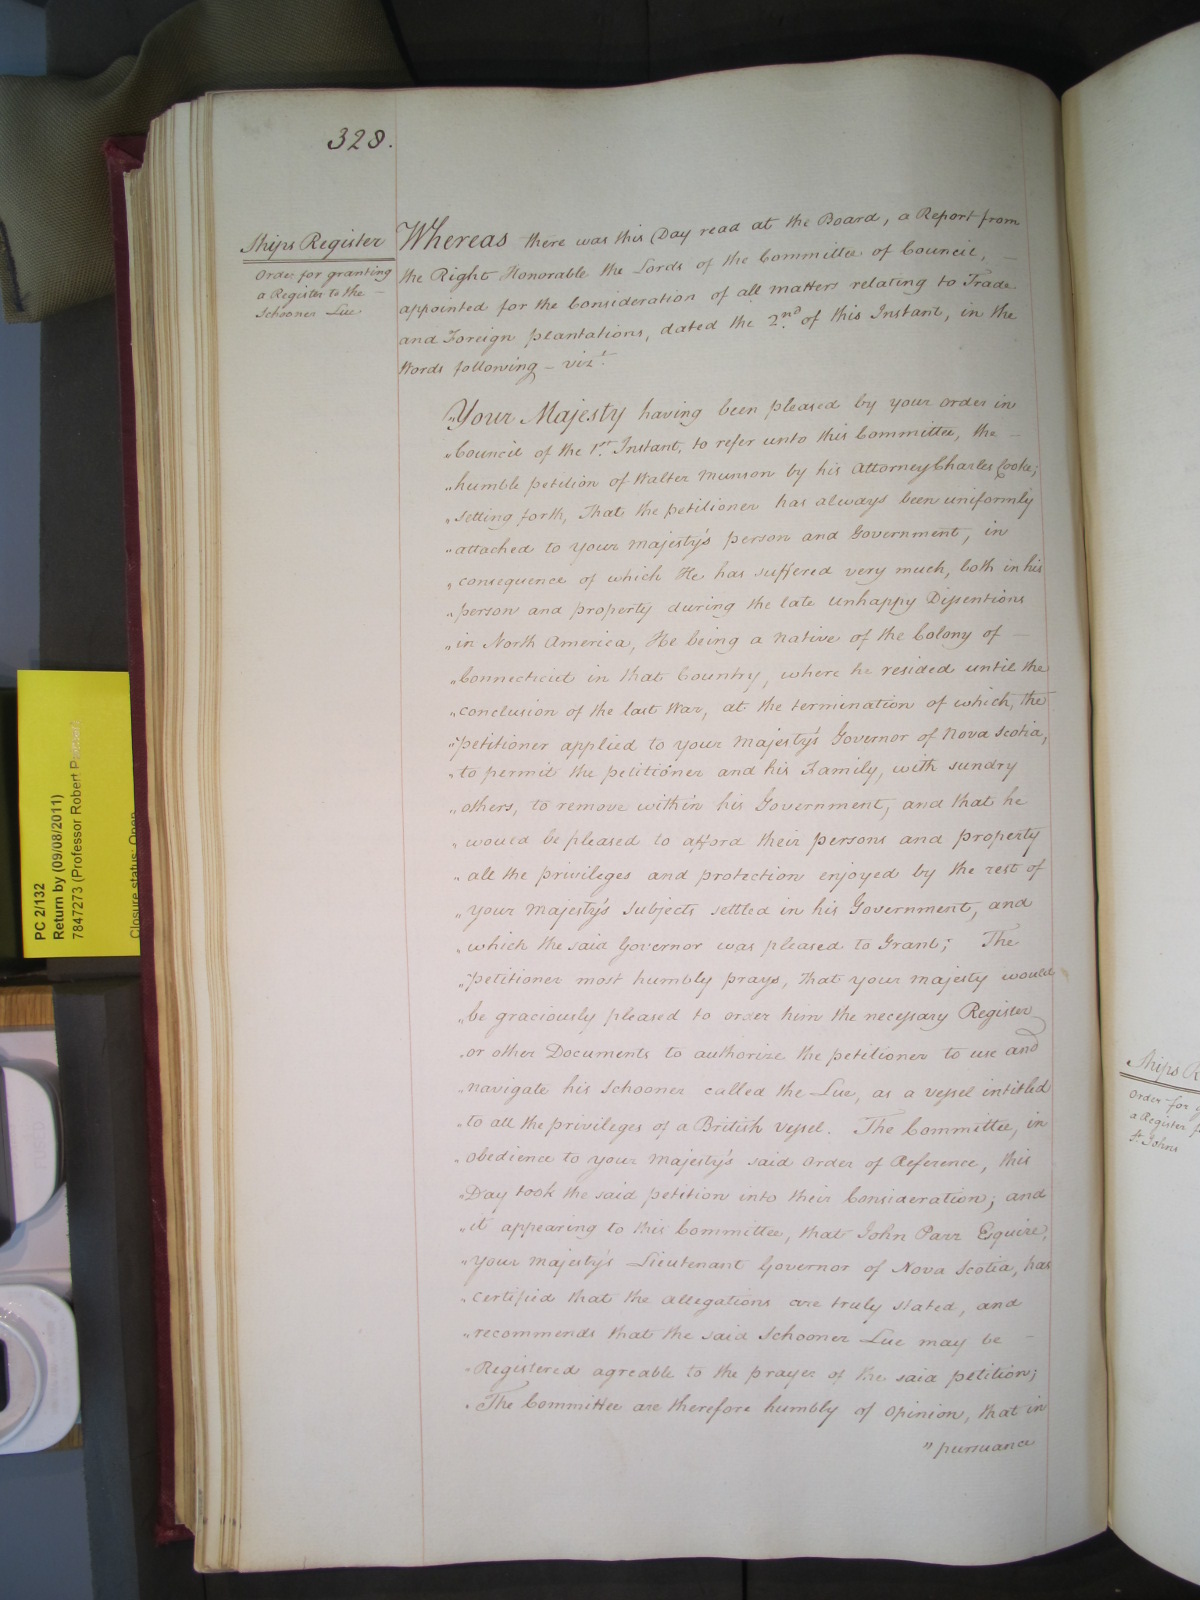 328.
Ships Register
Order for granting
a Register to the
Schooner Lue
Whereas there was this Day read at the Board, a Report from
the Right Honorable the Lords of the Committee of Council, —
appointed for the Consideration of all matters relating to Trade
and Foreign plantations, dated the 2nd. of this Instant, in the
Words following – vizt.
"Your Majesty having been pleased by your Order in
"Council of the 1st. Instant, to refer unto this Committee, the —
"humble petition of Walter Munson by his Attorney Charles Cooke;
"setting forth, That the petitioner has always been uniformly
"attached to your Majesty's person and Government, in
"consequence of which He has suffered very much, both in his
"person and property during the late unhappy Dissentions
"in North America, He being a Native of the Colony of —
"Connecticut in that Country, where he resided until the
"conclusion of the last War, at the termination of which, the
"petitioner applied to your Majesty's Governor of Nova Scotia,
"to permit the petitioner and his Family, with sundry
"others, to remove within his Government, and that he
"would be pleased to afford their persons and property
"all the privileges and protection enjoyed by the rest of
"your Majesty's Subjects settled in his Government, and
"which the said Governor was pleased to Grant; The
"petitioner most humbly prays, that your Majesty would
"be graciously pleased to order him the necessary Register
"or other Documents to authorize the petitioner to use and
"navigate his Schooner called the Lue, as a vessel intitled
"to all the privileges of a British vessel. The Committee, in
"obedience to your Majesty's said Order of Reference, this
"Day took the said petition into their Consideration; and
"it appearing to this Committee, that John Parr Esquire,
"your Majesty's Lieutenant Governor of Nova Scotia, has
"certified that the allegations are truly stated, and
"recommends that the said Schooner Lue may be —
"Registered agreable to the prayer of the said petition;
"The Committee are therefore humbly of Opinion, that in
"pursuance
PC 2/132
Return by (09/08/2011)
7847273 (Professor Robert
Closure status: Open
Ships R
Order for g
a Register f
St. Johns